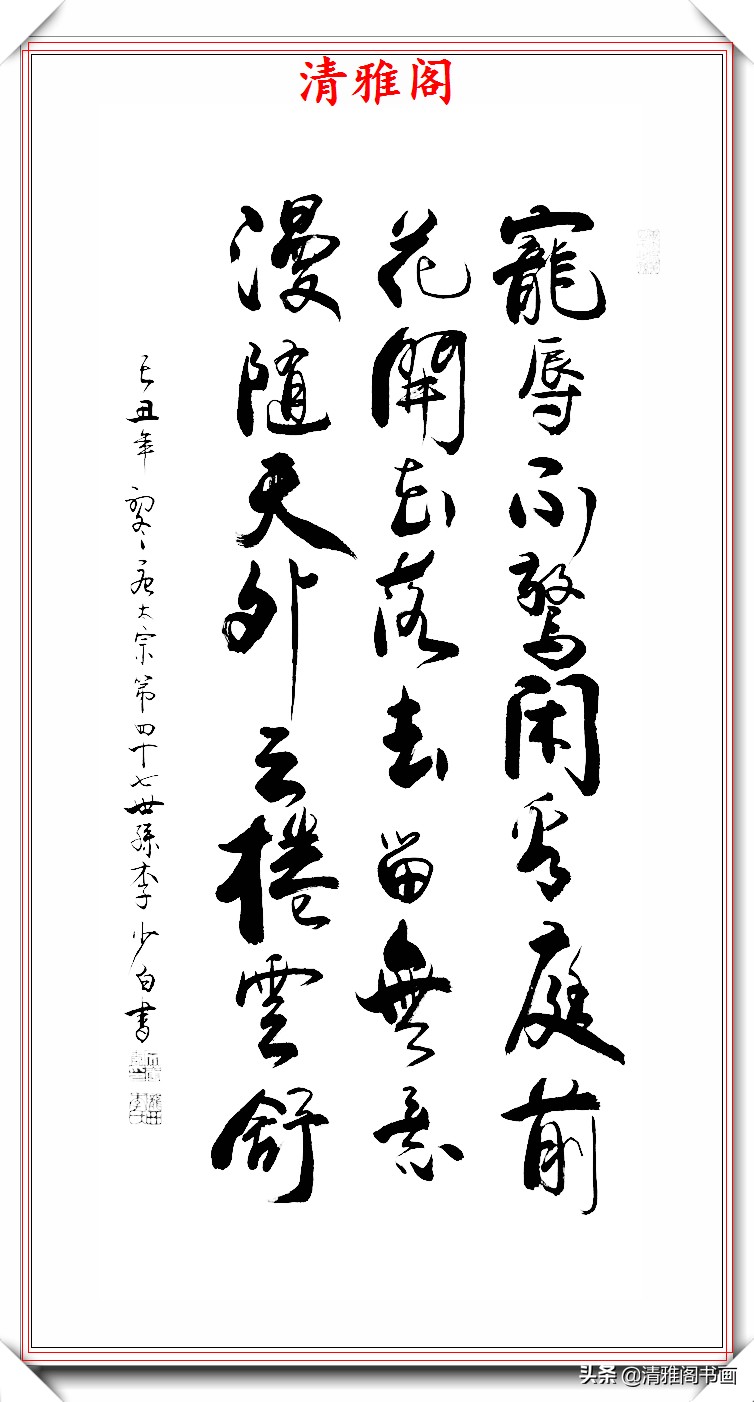 清雅阁
寵辱不驚閑看庭前
花開花落去留無意
漫随天外云捲雲舒
己丑年初冬唐太宗第四十七世孫李少白書
头条 @清雅阁书画